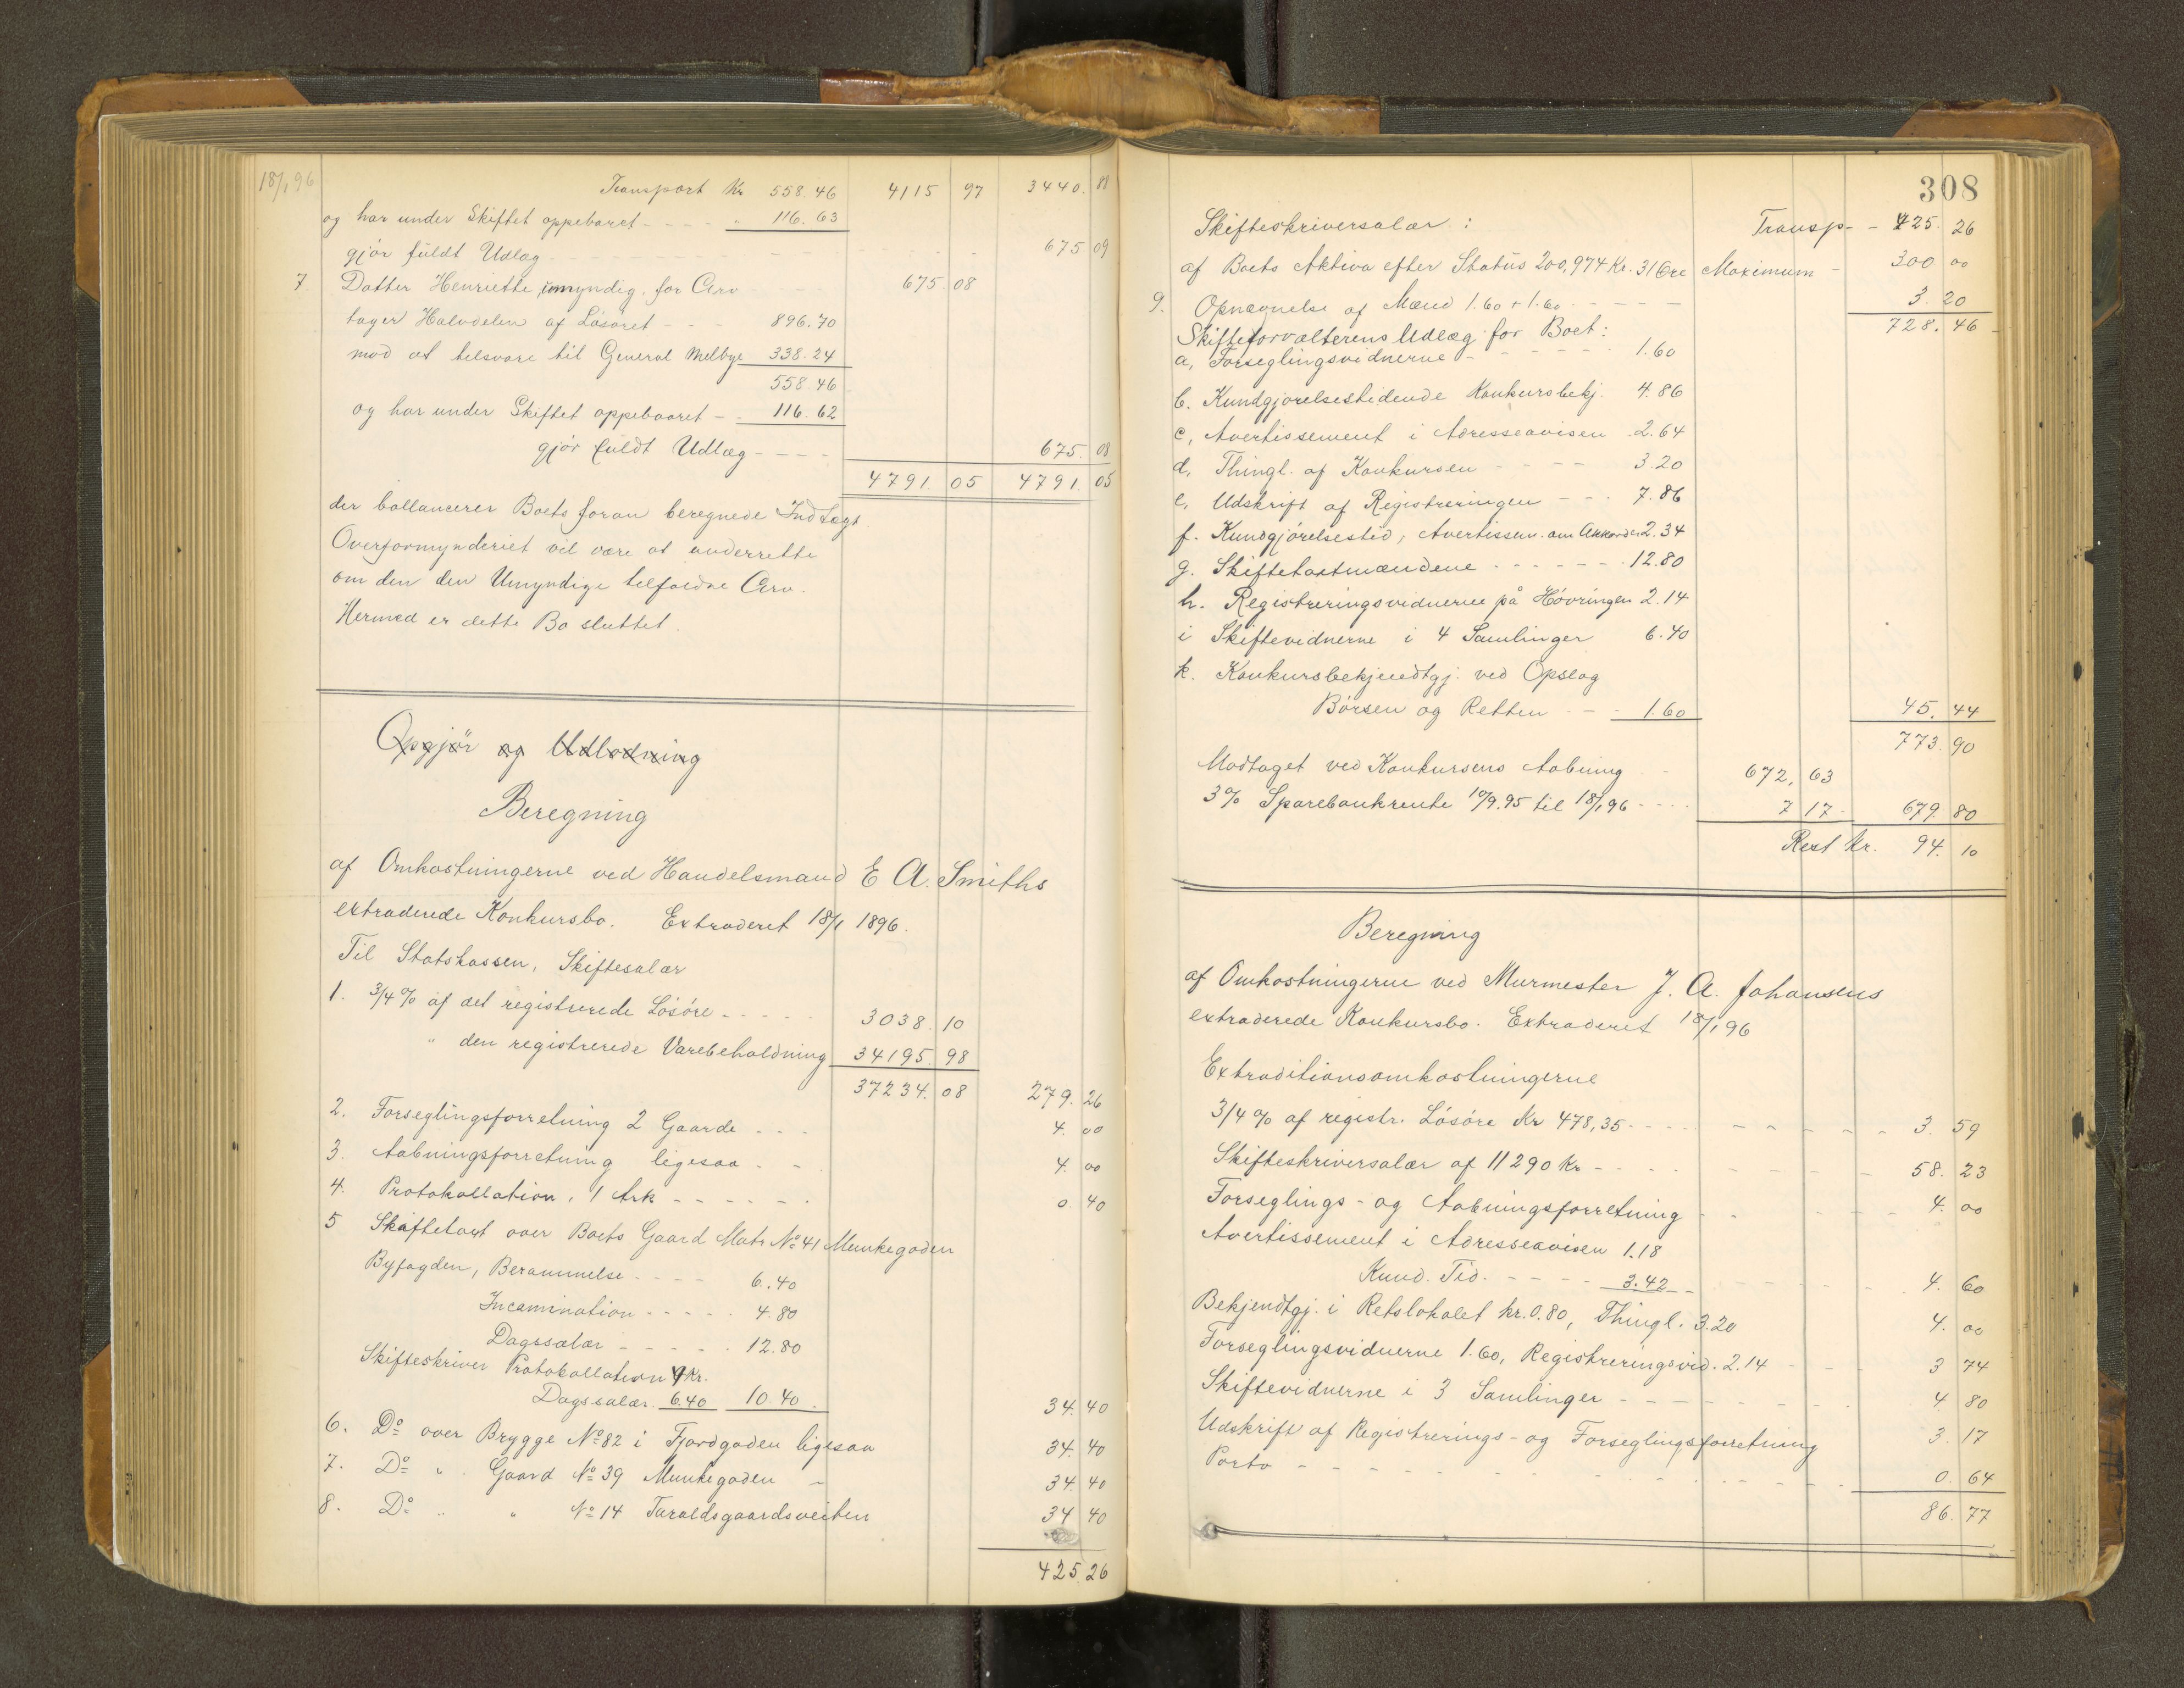 18/1 96
Transport Kr 558.46 4115 97 3440. 88
og har under Skiftet oppebaret - - - - " 116.63
gjör fuldt Udlæg - - - - 675 09
7. Datter Henriette, umyndig. for Arv - - - 675 08
tager Halvdelen af Lösöret - - - 896.70
mod at tilsvare til General Melbye 338.24
558.46
og har under Skiftet oppebaaret - - 116.62
gjör fuldt Udlæg - - - - 675. 08
4791. 05 4791. 05
der ballancerer Boets foran beregnede Indtægt.
Overformynderiet vil være at underrette
om den den Umyndige tilfaldne Arv.
Hermed er dette Bo sluttet.
Opgjör og Udlodning
Beregning
af Omkostningerne ved Handelsmand E A. Smiths
extraderede Konkursbo. Extraderet 18/1 1896.
Til Statskassen, Skiftesalær
1. 3/4 % af det registrerede Lösöre - - - - - 3038. 10
" den registrerede Varebeholdning 34195. 98
37234. 08 279. 26
2. Forseglingsforretning 2 Gaarde - - - 4. 00
3. Aabningsforretning ligesaa - - 4. 00
4. Protokollation, 1 Ark - - - - - - 0. 40
5 Skiftetaxt over Boets Gaard Matr No 41 Munkegaden
Byfogden, Berammelse - - - - 6.40
Incamination - - - - - 4.80
Dagssalær - - - - - 12.80
Skifteskriver Protokollation 4 Kr.
Dagssalær 6.40 10.40 34. 40
6. Do over Brygge No 82 i Fjordgaden ligesaa 34. 40
7. Do " Gaard No 39 Munkegaden - 34. 40
8. Do " " No 14 Taraldsgaardsveiten 34 40
425. 26
308
Skifteskriversalær : Transp - - 425. 26
af Boets Aktiva efter Status 200,974 Kr. 31 Öre Maximum - 300 00
9. Opnævnelse af Mænd 1.60 + 1.60 - - - - 3. 20
728. 46
Skifteforvalterens Udlæg for Boet:
a, Forseglingsvidnerne - - - - - 1.60
b. Kundgjörelsestidende Konkursbekj. 4.86
c, Avertissement i Adresseavisen 2.64
d. Thingl. af Konkursen - - - - 3.20
e, Udskrift af Registreringen - - - 7.86
f. Kundgjörelsestid, Avertissem. om Akkorden 2.34
g. Skiftetaxtmændene - - - - - - 12.80
h. Registreringsvidnerne på Hövringen 2.14
i Skiftevidnerne i 4 Samlinger 6.40
k. Konkursbekjendtgj. ved Opslag
Börsen og Retten - - - 1.60 45. 44
773. 90
Modtaget ved Konkursens Aabning - 672, 63
3 % Sparebankrente 10/9.95 til 18/1 96 - - - - 7 17 679. 80
Rest Kr. 94. 10
Beregning
af Omkostningerne ved Murmester J. A. Johansens
extraderede Konkursbo. Extraderet 18/1 96
Extraditionsomkostningerne
3/4 % af registr. Lösöre Kr 478,35 - - - - - - - - - 3. 59
Skifteskriversalær af 11290 Kr - - - - - - - - 58. 23
Forseglings- og Aabningsforretning - - - - - 4. 00
Avertissement i Adresseavisen 1.18
Kund. Tid. - - - - 3.42 - - - - - 4. 60
Bekjendtgj. i Retslokalet kr. 0.80, Thingl. 3.20 4. 00
Forseglingsvidnerne 1.60, Registreringsvid. 2.14 - - - 3 74
Skiftevidnerne i 3 Samlinger - - - - - - - - 4 80
Udskrift af Registrerings- og Forseglingsforretning 3. 17
Porto - - - - - - - - - - - - 0. 64
86. 77